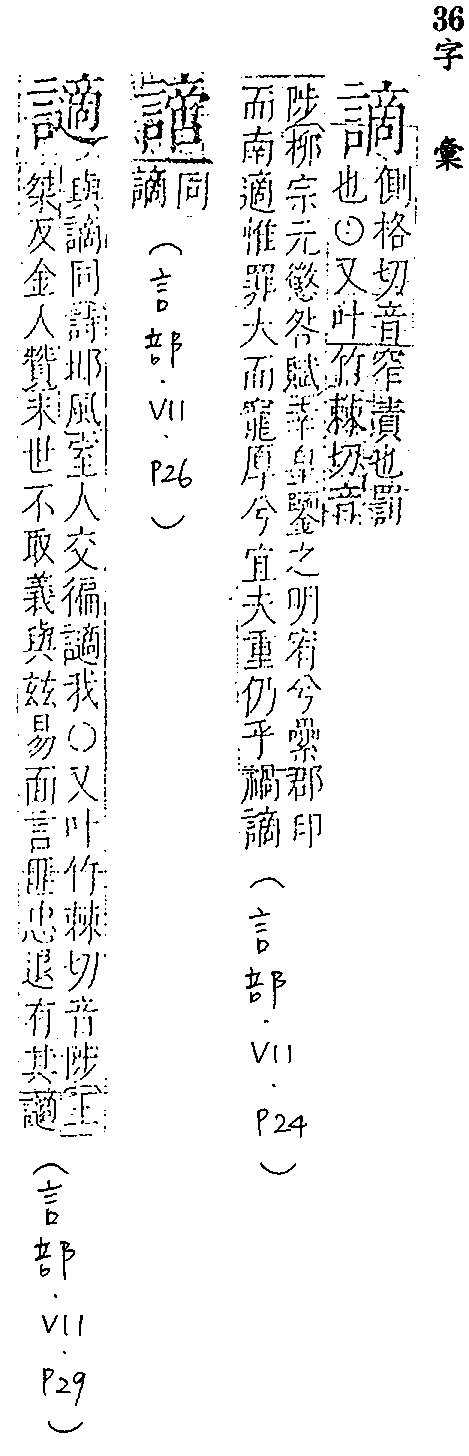 36字 彙
謫 側格切音窄責也罰
也○又叶竹棘切音
陟柳宗元懲咎賦幸皇鑒之明宥兮纍郡印
而南適惟罪大而寵厚兮宜夫重仍乎禍謫
(言部.VII.P24)
謮 同
謫
(言部.VII.P26)
讁 與謫同詩邶風室人交徧讁我○又叶竹棘切音陟王
榮反金人贊末世不取義與玆易面言匪忠退有其讁
(言部.VII.P29)